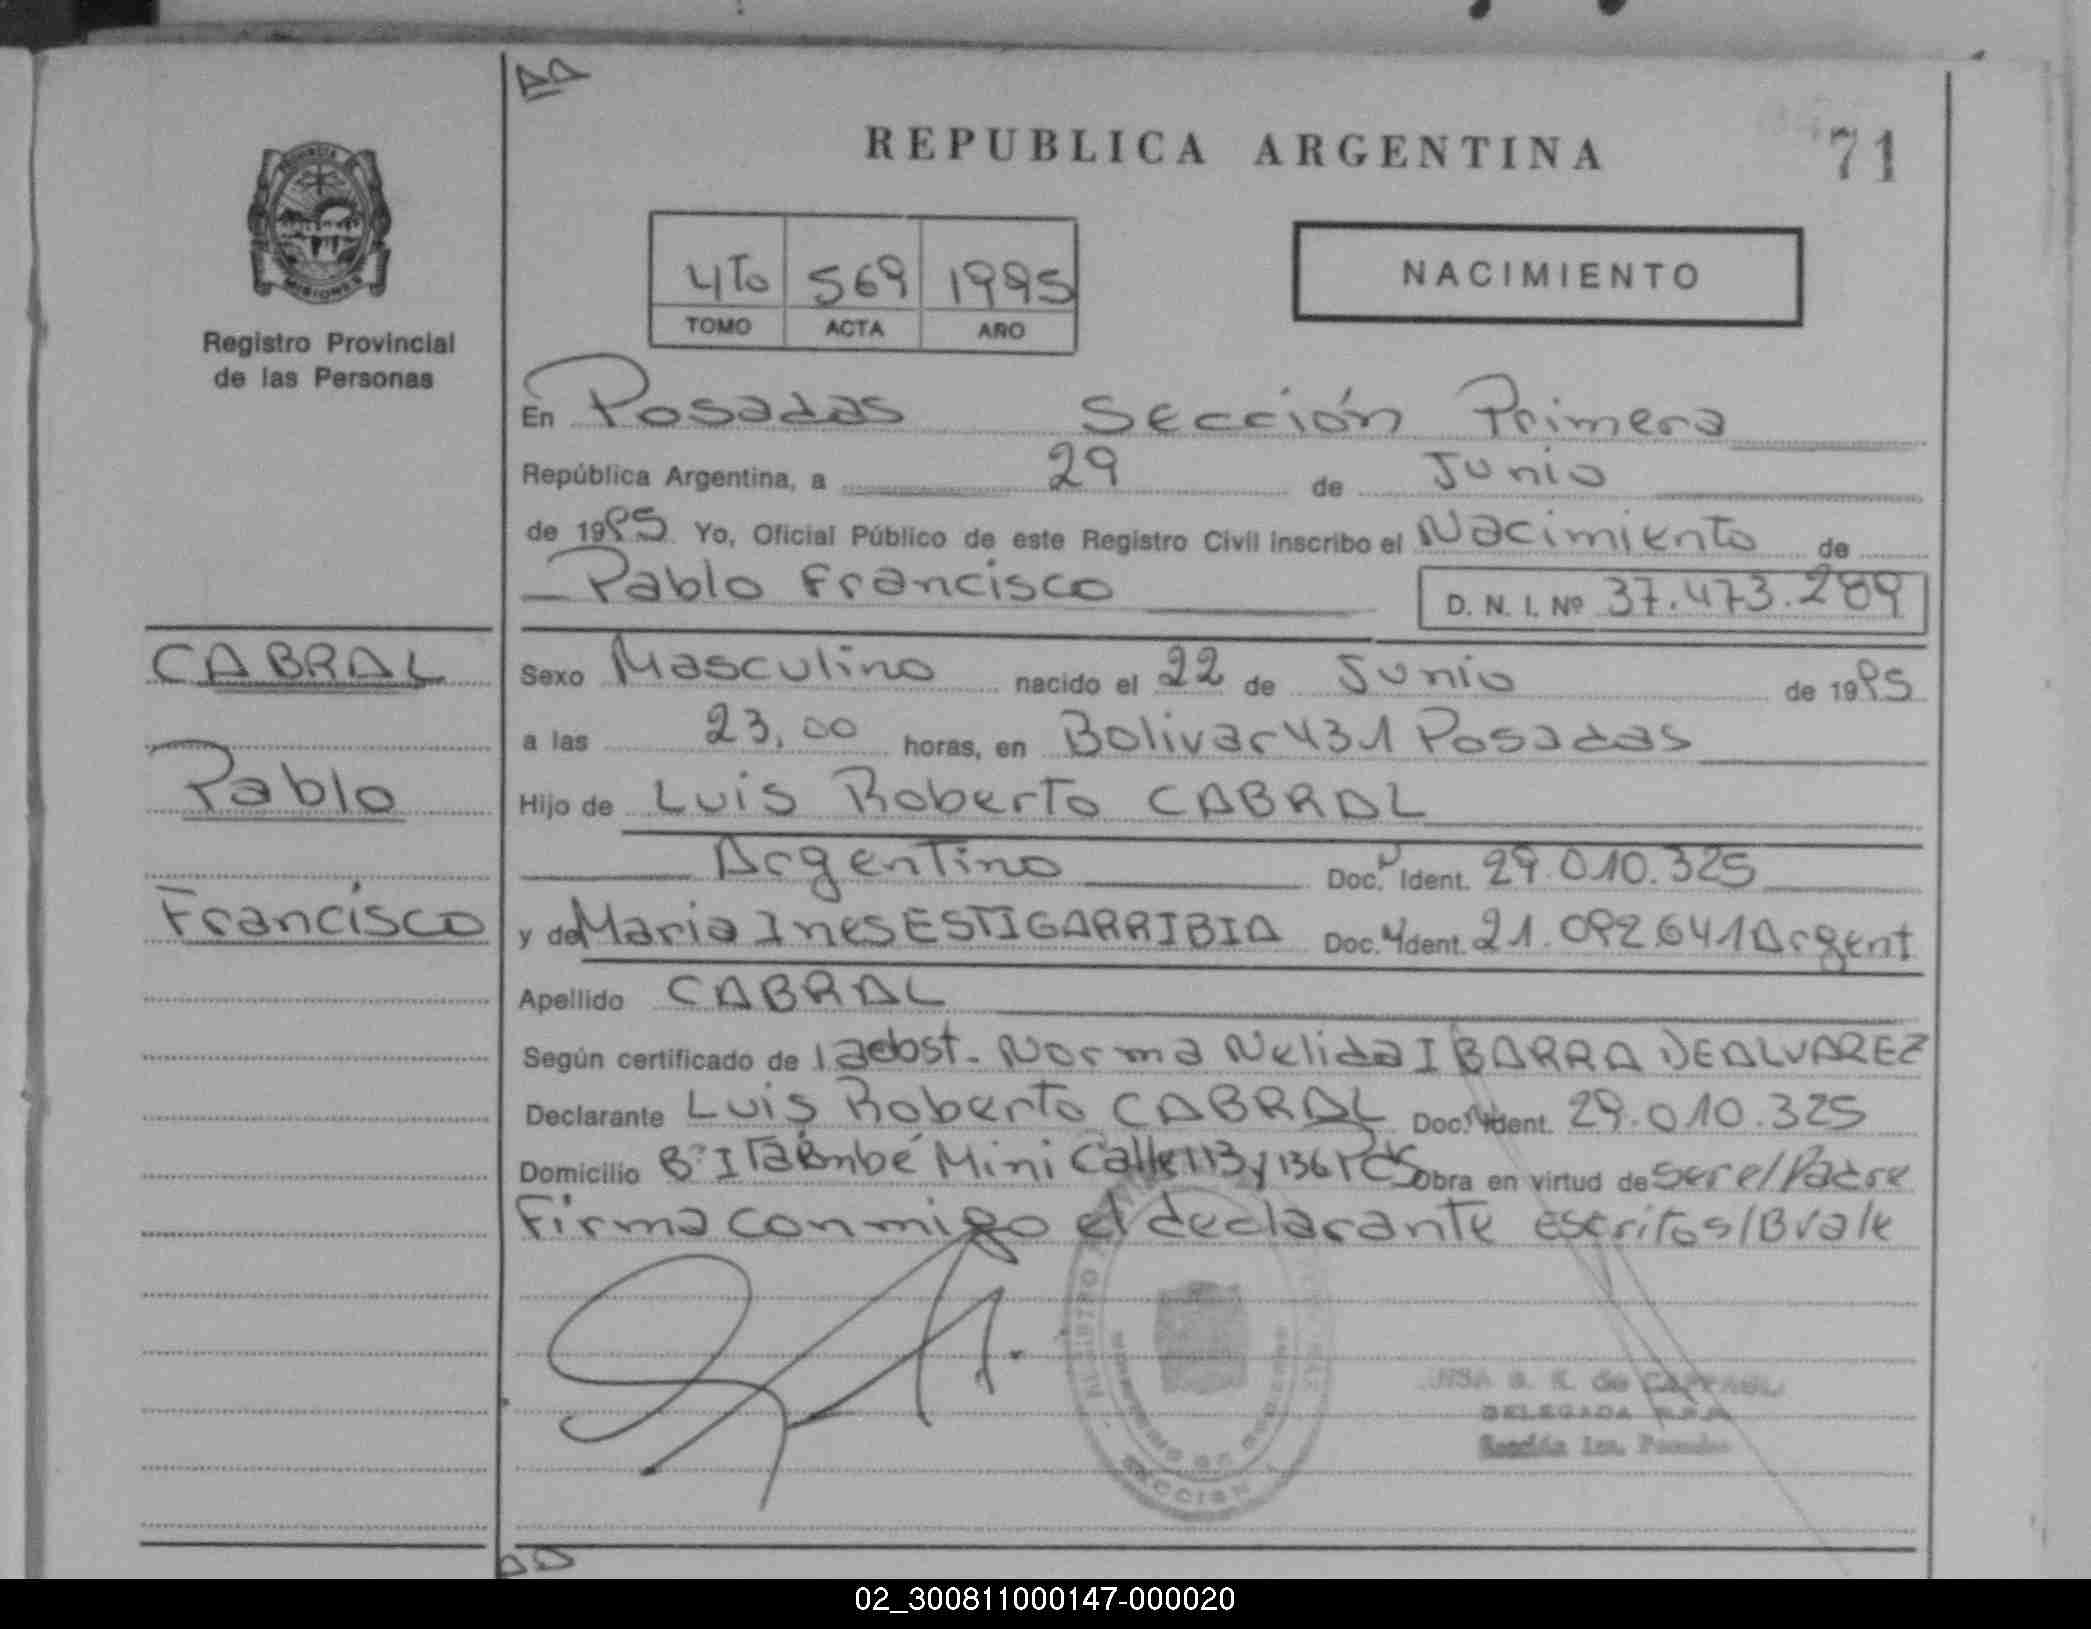 REPUBLICA ARGENTINA
71
MISIONES
Registro Provincial
de las Personas
4To 569 1995
TOMO ACTA AÑO
NACIMIENTO
En Posadas Sección Primera
República Argentina, a 29 de Junio
de 1995 Yo, Oficial Público de este Registro Civil inscribo el Nacimiento de
Pablo Francisco D. N. I. Nº 37.473.289
CABRAL
Pablo
Francisco
Sexo Masculino nacido el 22 de Junio de 1995
a las 23,00 horas, en Bolivar 431 Posadas
Hijo de Luis Roberto CABRAL
Argentino Doc. Ident. 29.010.325
y de Maria Ines ESTIGARRIBIA Doc. Ident. 21.092.641 Argent
Apellido CABRAL
Según certificado de la obst. Norma Nelida IBARRA DE ALVAREZ
Declarante Luis Roberto CABRAL Doc. Ident. 29.010.325
Domicilio Bº Itaembé Mini Calle 113 y 136 Pdas Obra en virtud de ser el Padre
Firma conmigo el declarante escritos/B vale
de
DELEGADA
Sección 1ra. Posadas
SECCION
02_300811000147-000020